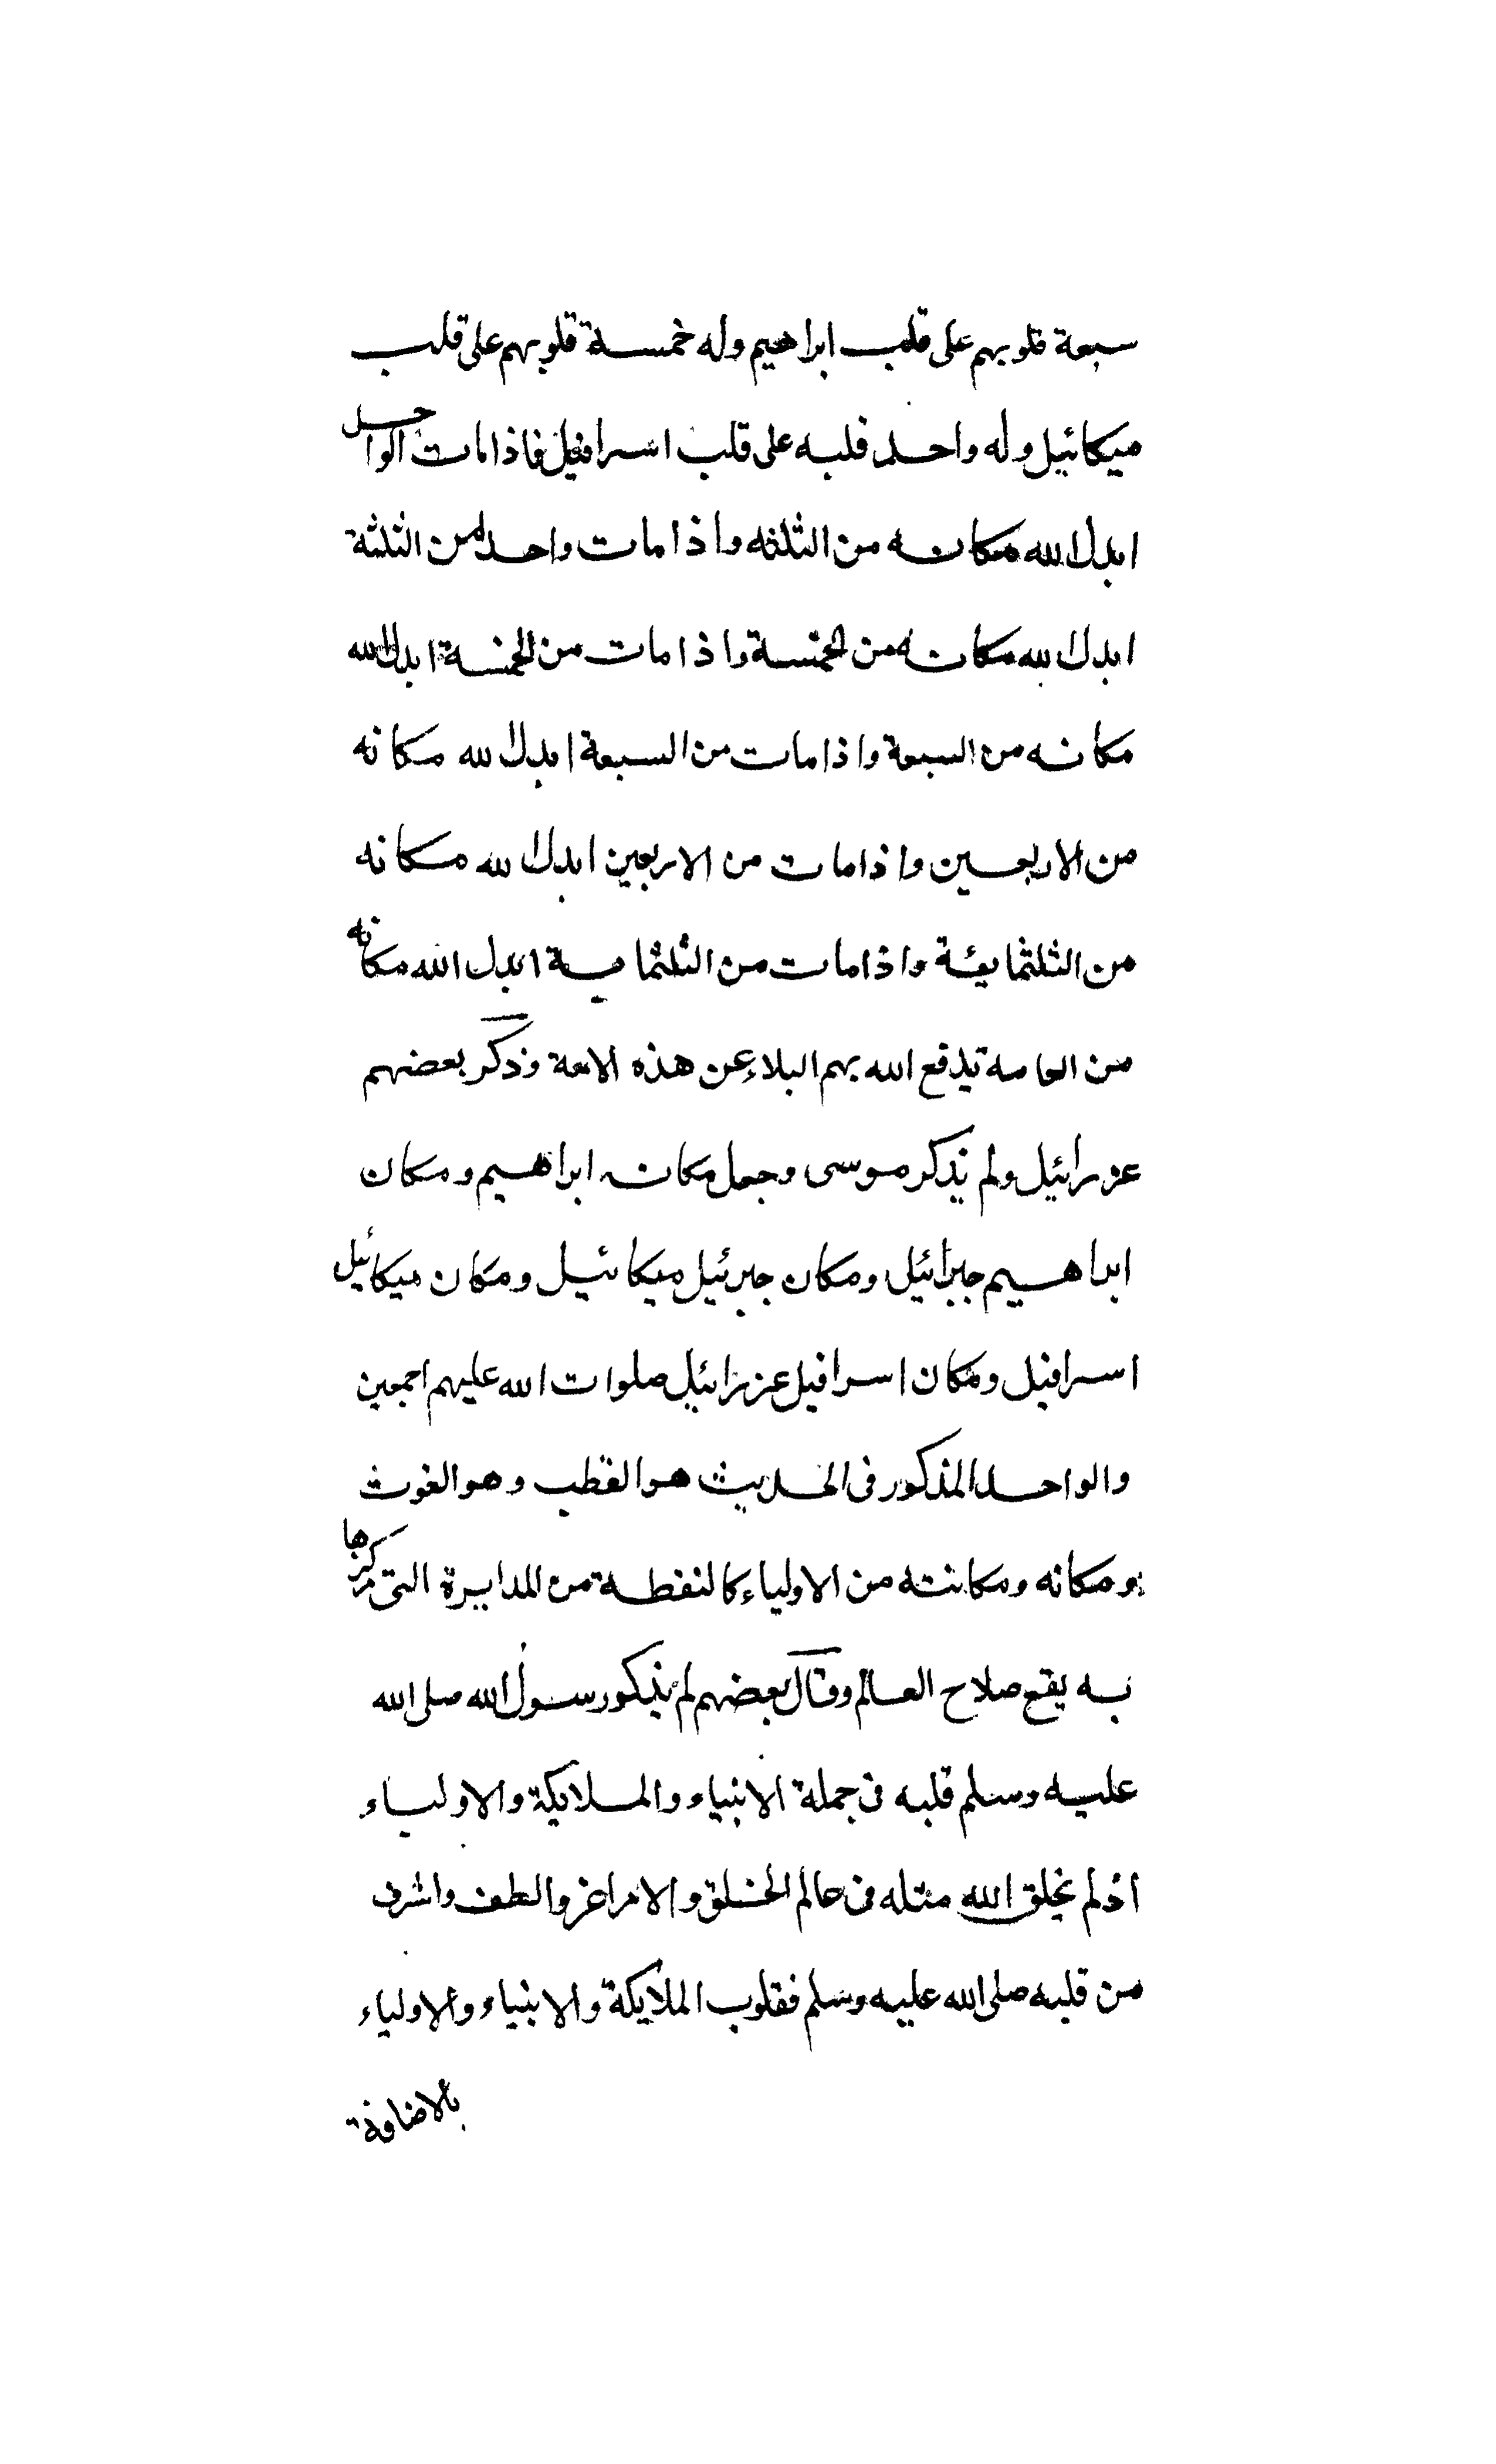 سبعة قلوبهم على قلب ابراهيم وله خمسة قلوبهم على قلب
ميكائيل وله واحد قلبه على قلب اسرافيل فاذا مات الواحد
ابدل الله مكانه من الثلثه واذا مات واحد من الثلثة
ابدل الله مكانه من الخمسة واذا مات من الخمسة ابدل الله
مكانه من السبعة واذا مات من السبعة ابدل الله مكانه
من الاربعين واذا مات من الاربعين ابدل الله مكانه
من الثلثمايئة واذا مات من الثلثماية ابدل الله مكانه
من العامه يدفع الله بهم البلاء عن هذه الامة وذكر بعضهم
عزرائيل ولم يذكر موسى وجعل مكانه ابراهيم ومكان
ابراهيم جبرائيل ومكان جبرئيل ميكائيل ومكان ميكائيل
اسرافيل ومكان اسرافيل عزرائيل صلوات الله عليهم اجمعين
والواحد المذكور فى الحديث هو القطب وهو الغوث
ومكانه ومكانته من الاولياء كالنقطة من الدايرة التى مركزها
به يقع صلاح العالم وقال بعضهم لم يذكر رسول الله صلى الله
عليه وسلم قلبه فى جملة الانبياء والملايكة والاولياء
اذ لم يخلق الله مثله فى عالم الخلق والامر اعز والطف واشرف
من قلبه صلى الله عليه وسلم فقلوب الملايكة والانبياء والاولياء
بالاضافة